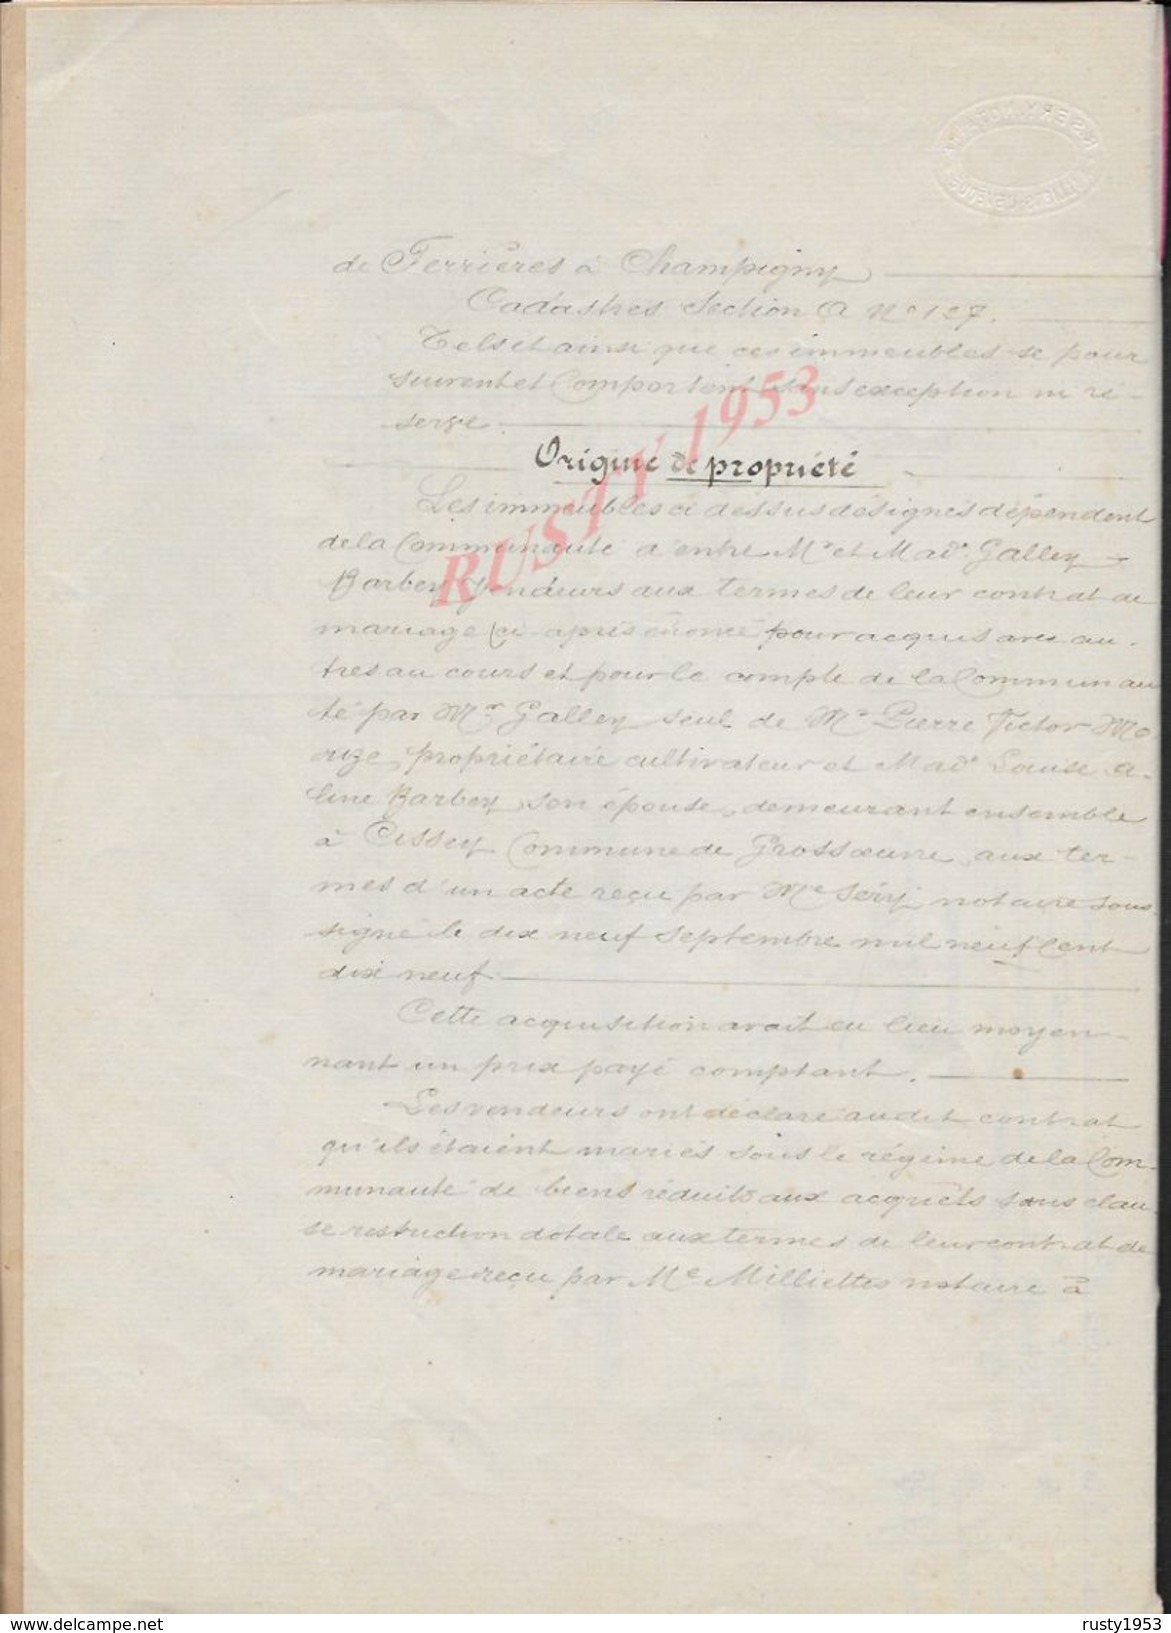 de Ferrières à Champigny
Cadastres Section A N° 127.
Tels et ainsi que ces immeubles se pour
suivent et Comportent sans exception ni ré-
serve.
Origine de propriété
Les immeubles ci dessus désignés dépendent
de la Communauté d'entre Mr et Made Galley
Barbey Vendeurs aux termes de leur contrat de
mariage ci-après énoncé pour acquis avec au-
tres au cours et pour le compte de la Communau
té par Mr Galley seul de Mr Pierre Victor Mo
rize, propriétaire cultivateur et Made Louise A-
line Barbey, son épouse, demeurant ensemble
à Cissey Commune de Grossœuvre, aux ter-
mes d'un acte reçu par Me Séry notaire sous-
signé le dix neuf septembre mil neuf Cent
dix neuf
Cette acquisition avait eu lieu moyen-
nant un prix payé comptant.
Les vendeurs ont déclaré audit contrat
qu'ils étaient mariés sous le régime de la Com-
munauté de biens réduits aux acquêts sans clau
se restriction dotale aux termes de leur contrat de
mariage reçu par Me Milliettes notaire à
RUSTY 1953
www.delcampe.net
rusty1953